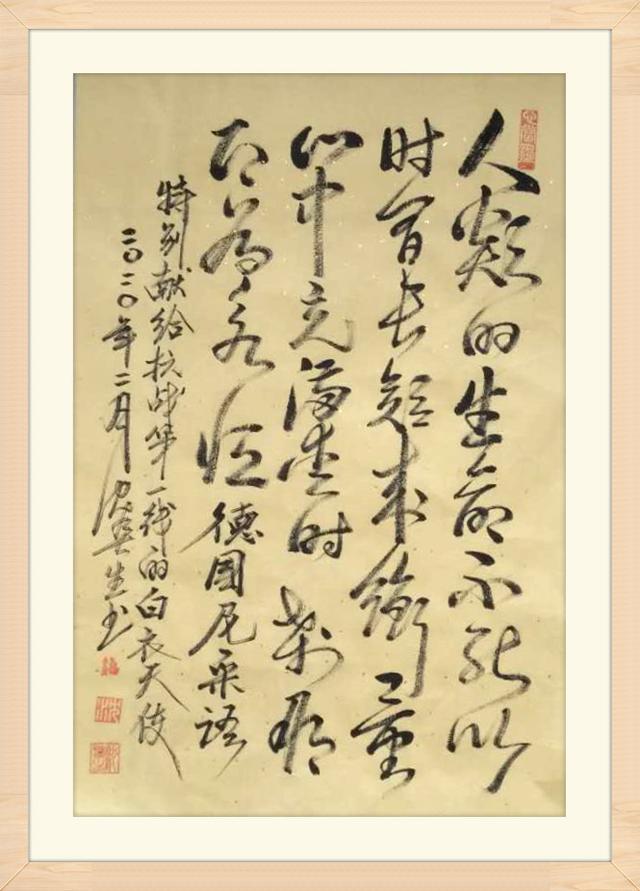 人類的生命不能以
时间长短来衡量
心中充满爱时刹那
即为永恒德国尼采语
特别献给抗战第一线的白衣天使
二〇二〇年二月沈兴生书